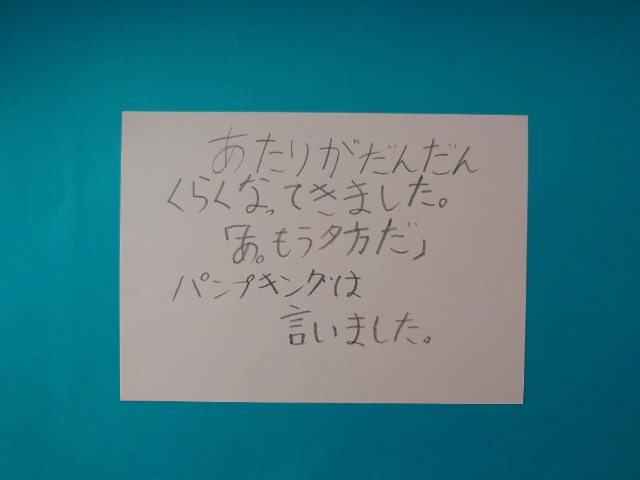 あたりがだんだん
くらくなってきました。
「あ。もう夕方だ」
パンプキングは
言いました。